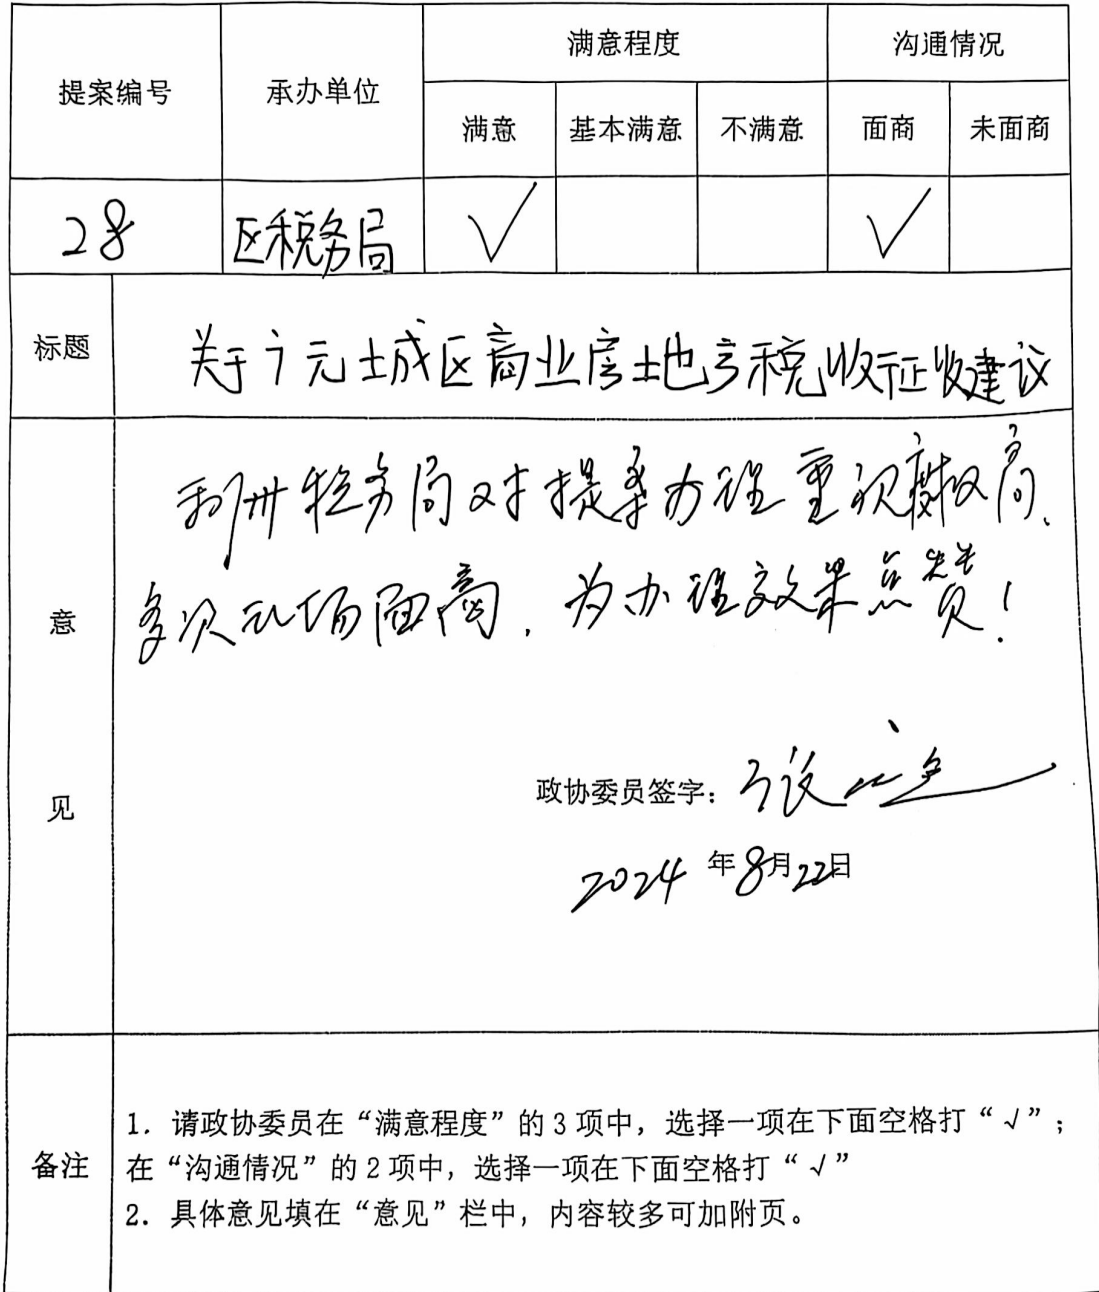 提案编号 承办单位 满意程度 沟通情况
满意 基本满意 不满意 面商 未面商
28 区税务局 √ √
标题 关于广元城区商业房地产税收征收建议
意见
利州税务局对提案办理重视度较高、
多次现场面商,为办理效果点赞!
政协委员签字:张
2024年8月22日
备注
1. 请政协委员在“满意程度”的3项中,选择一项在下面空格打“√”;
在“沟通情况”的2项中,选择一项在下面空格打“√”
2. 具体意见填在“意见”栏中,内容较多可加附页。